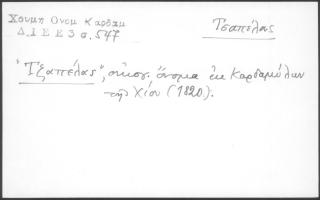 Χουμη Ονομ. Καρδαμ
Δ.Ι.Ε.Ε 3 σ. 547
Τσαπέλας
"Τζαπέλας", οἰκογ. ὄνομα ἐκ Καρδαμύλων
τῆς Χίου (1820).